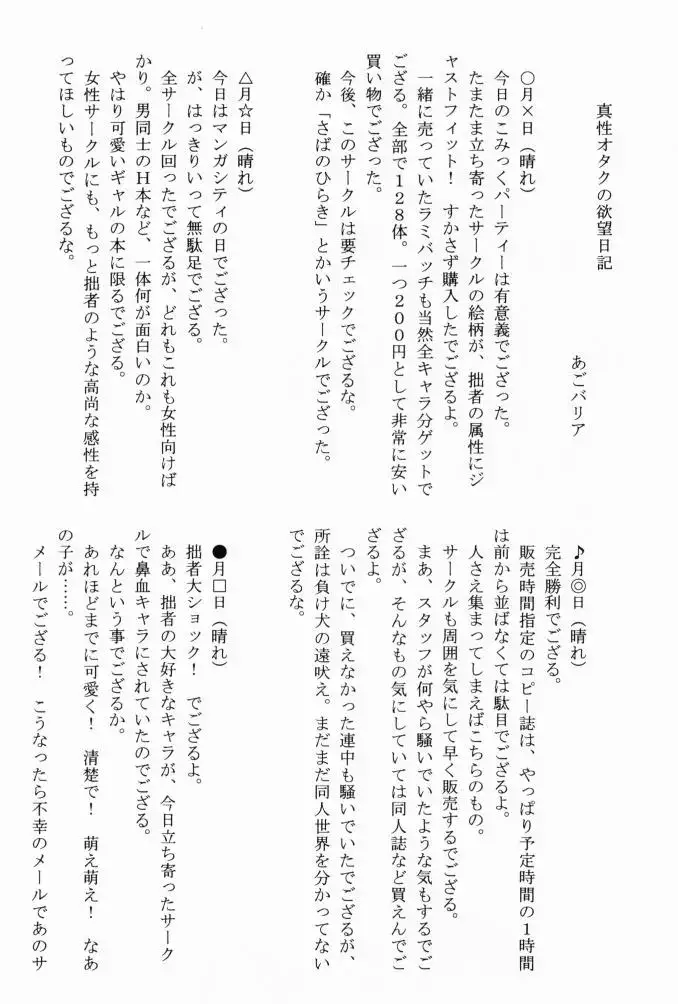 真性オタクの欲望日記
あごバリア
○月×日（晴れ）
今日のこみっくパーティーは有意義でござった。
たまたま立ち寄ったサークルの絵柄が、拙者の属性にジ
ャストフィット！　すかさず購入したでござるよ。
一緒に売っていたラミバッチも当然全キャラ分ゲットで
ござる。全部で１２８体。一つ２００円として非常に安い
買い物でござった。
今後、このサークルは要チェックでござるな。
確か「さばのひらき」とかいうサークルでござった。
△月☆日（晴れ）
今日はマンガシティの日でござった。
が、はっきりいって無駄足でござる。
全サークル回ったでござるが、どれもこれも女性向けば
かり。男同士のＨ本など、一体何が面白いのか。
やはり可愛いギャルの本に限るでござる。
女性サークルにも、もっと拙者のような高尚な感性を持
ってほしいものでござるな。
♪月◎日（晴れ）
完全勝利でござる。
販売時間指定のコピー誌は、やっぱり予定時間の１時間
は前から並ばなくては駄目でござるよ。
人さえ集まってしまえばこちらのもの。
サークルも周囲を気にして早く販売するでござる。
まあ、スタッフが何やら騒いでいたような気もするでご
ざるが、そんなもの気にしていては同人誌など買えんでご
ざるよ。
ついでに、買えなかった連中も騒いでいたでござるが、
所詮は負け犬の遠吠え。まだまだ同人世界を分かってない
でござるな。
●月□日（晴れ）
拙者大ショック！　でござるよ。
ああ、拙者の大好きなキャラが、今日立ち寄ったサーク
ルで鼻血キャラにされていたのでござる。
なんという事でござるか。
あれほどまでに可愛く！　清楚で！　萌え萌え！　なあ
の子が……。
メールでござる！　こうなったら不幸のメールであのサ